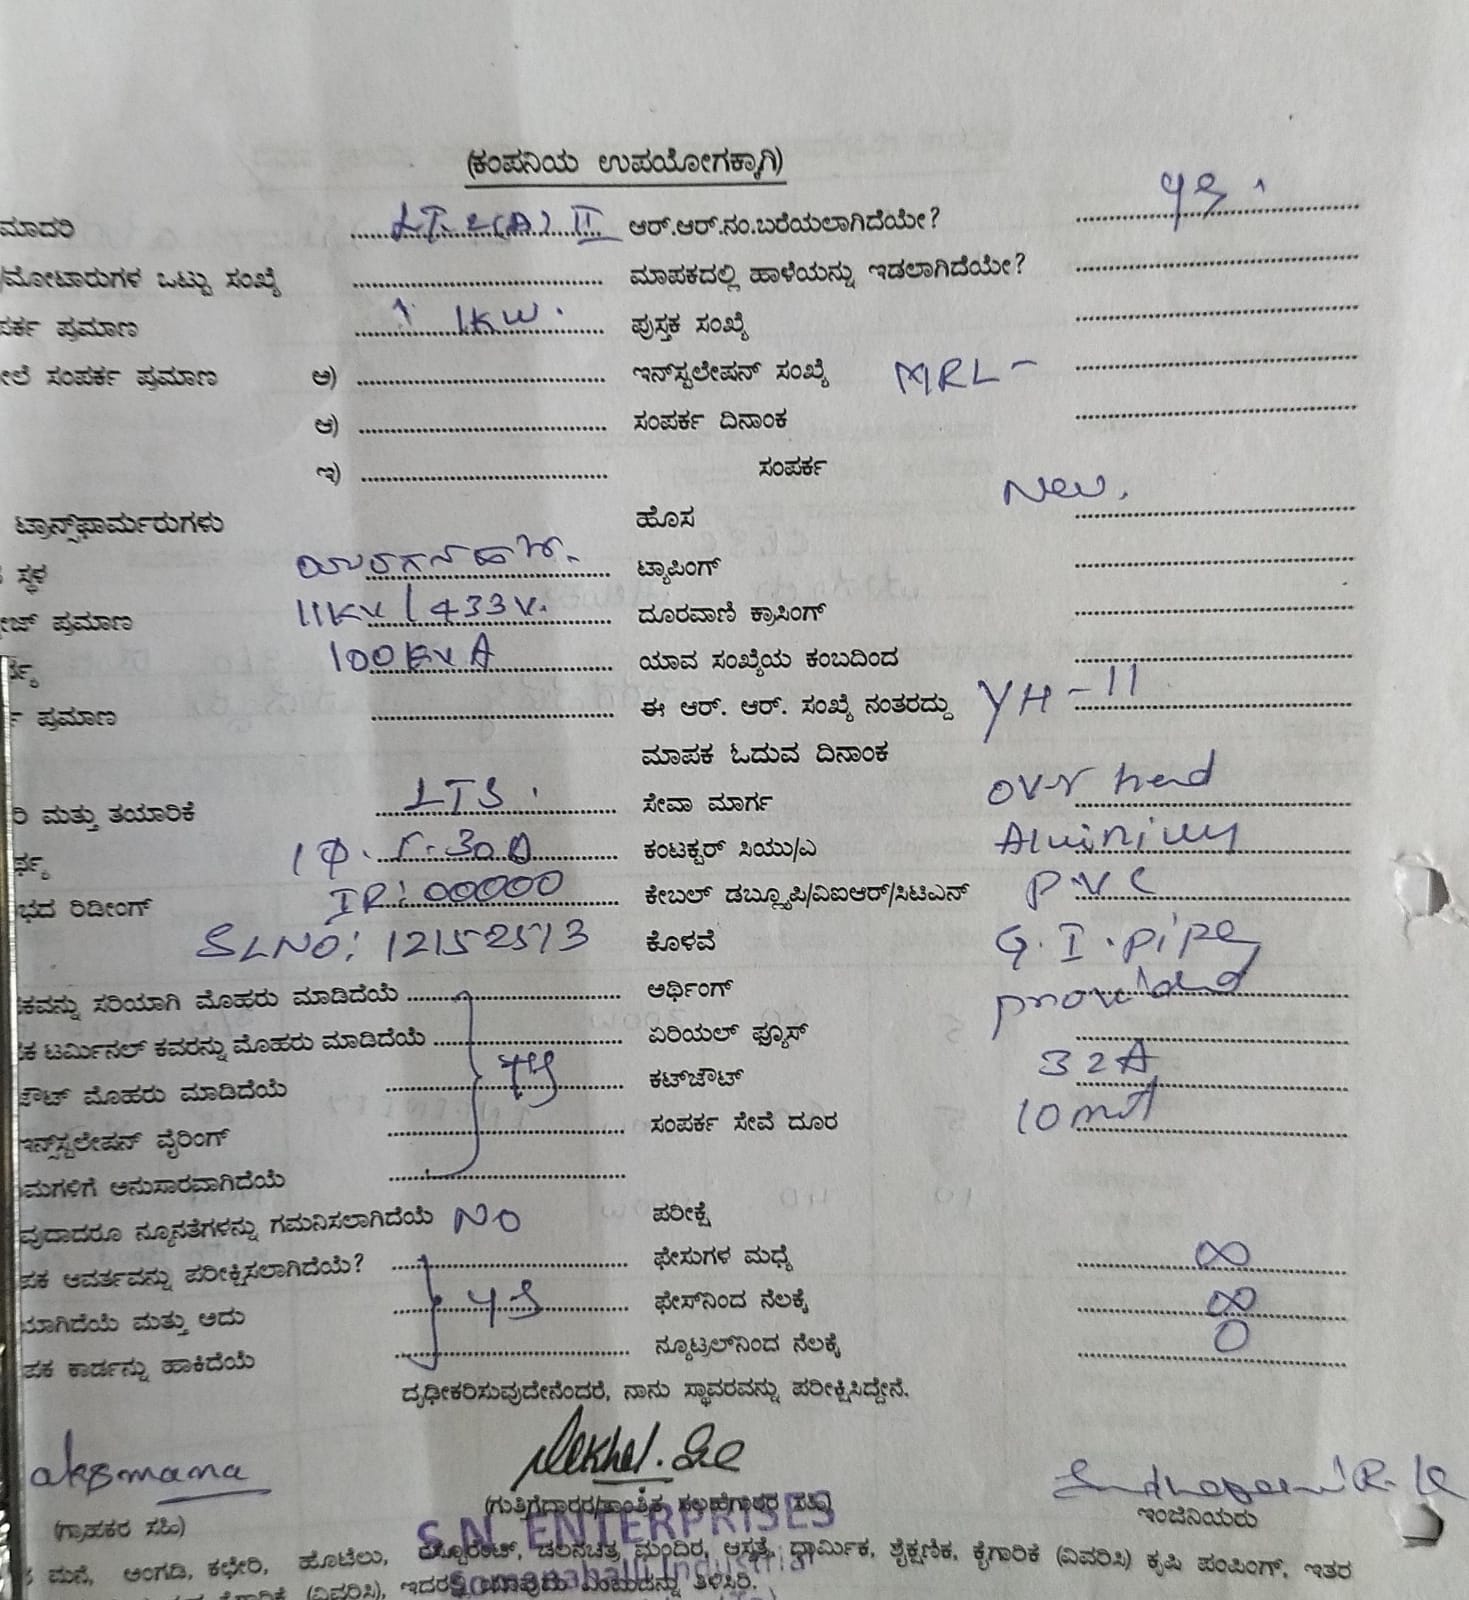 (ಕಂಪನಿಯ ಉಪಯೋಗಕ್ಕಾಗಿ)
ಮಾದರಿ LT. 2(A) II ಆರ್.ಆರ್.ನಂ.ಬರೆಯಲಾಗಿದೆಯೇ? ys.
/ಮೋಟಾರುಗಳ ಒಟ್ಟು ಸಂಖ್ಯೆ ಮಾಪಕದಲ್ಲಿ ಹಾಳೆಯನ್ನು ಇಡಲಾಗಿದೆಯೇ?
ಪರ್ಕ ಪ್ರಮಾಣ 1KW. ಪುಸ್ತಕ ಸಂಖ್ಯೆ
ಲೆ ಸಂಪರ್ಕ ಪ್ರಮಾಣ ಅ) ಇನ್‌ಸ್ಟಲೇಷನ್ ಸಂಖ್ಯೆ MRL -
ಆ) ಸಂಪರ್ಕ ದಿನಾಂಕ
ಇ) ಸಂಪರ್ಕ
ಟ್ರಾನ್ಸ್‌ಫಾರ್ಮರುಗಳು ಹೊಸ New.
ಸ್ಥಳ ಟ್ಯಾಪಿಂಗ್
ಜ್ ಪ್ರಮಾಣ 11KV / 433V. ದೂರವಾಣಿ ಕ್ರಾಸಿಂಗ್
100KVA ಯಾವ ಸಂಖ್ಯೆಯ ಕಂಬದಿಂದ
ಪ್ರಮಾಣ ಈ ಆರ್. ಆರ್. ಸಂಖ್ಯೆ ನಂತರದ್ದು YH - 11
ಮಾಪಕ ಓದುವ ದಿನಾಂಕ
ರಿ ಮತ್ತು ತಯಾರಿಕೆ LTS. ಸೇವಾ ಮಾರ್ಗ over head
1Φ. 5-30A ಕಂಟಕ್ಟರ್ ಸಿಯು/ಎ Aluminium
ಭದ ರಿಡೀಂಗ್ IR: 00000 ಕೇಬಲ್ ಡಬ್ಲ್ಯೂಪಿ/ವಿಐಆರ್/ಸಿಟಿಎಸ್ P.V.C
SLNO: 12152513 ಕೊಳವೆ G.I.pipe
ಕವನ್ನು ಸರಿಯಾಗಿ ಮೊಹರು ಮಾಡಿದೆಯೆ ಅರ್ಥಿಂಗ್ provided
ಕ ಟರ್ಮಿನಲ್ ಕವರನ್ನು ಮೊಹರು ಮಾಡಿದೆಯೆ ಏರಿಯಲ್ ಫ್ಯೂಸ್
ಔಟ್ ಮೊಹರು ಮಾಡಿದೆಯೆ ಕಟ್‌ಔಟ್ 32A
ಇನ್ಸ್‌ಸ್ಟಲೇಷನ್ ವೈರಿಂಗ್ ಸಂಪರ್ಕ ಸೇವೆ ದೂರ 10 mt
ಮಗಳಿಗೆ ಅನುಸಾರವಾಗಿದೆಯೆ
ವುದಾದರೂ ನ್ಯೂನತೆಗಳನ್ನು ಗಮನಿಸಲಾಗಿದೆಯೆ NO ಪರೀಕ್ಷೆ
ಪಕ ಆವರ್ತವನ್ನು ಪರೀಕ್ಷಿಸಲಾಗಿದೆಯೆ? ಫೇಸುಗಳ ಮಧ್ಯೆ ∞
ಯಾಗಿದೆಯೆ ಮತ್ತು ಅದು ys ಫೇಸ್‌ನಿಂದ ನೆಲಕ್ಕೆ ∞
ಪಕ ಕಾರ್ಡನ್ನು ಹಾಕಿದೆಯೆ ನ್ಯೂಟ್ರಲ್‌ನಿಂದ ನೆಲಕ್ಕೆ 0
ದೃಢೀಕರಿಸುವುದೇನೆಂದರೆ, ನಾನು ಸ್ಥಾವರವನ್ನು ಪರೀಕ್ಷಿಸಿದ್ದೇನೆ.
(ಗ್ರಾಹಕರ ಸಹಿ) (ಗುತ್ತಿಗೆದಾರರ/ತಾಂತ್ರಿಕ ಸಲಹೆಗಾರರ ಸಹಿ) ಇಂಜಿನಿಯರು
S.N. ENTERPRISES
ಮನೆ, ಅಂಗಡಿ, ಕಛೇರಿ, ಹೊಟೆಲು, ರೆಸ್ಟೊರೆಂಟ್, ಚಲನಚಿತ್ರ ಮಂದಿರ, ಆಸ್ಪತ್ರೆ, ಧಾರ್ಮಿಕ, ಶೈಕ್ಷಣಿಕ, ಕೈಗಾರಿಕೆ (ವಿವರಿಸಿ) ಕೃಷಿ ಪಂಪಿಂಗ್, ಇತರ
Somanahalli Industrial
(ವಿವರಿಸಿ), ಇದರಲ್ಲಿ ಯಾವುದು ಎಂಬುದನ್ನು ತಿಳಿಸಿರಿ.